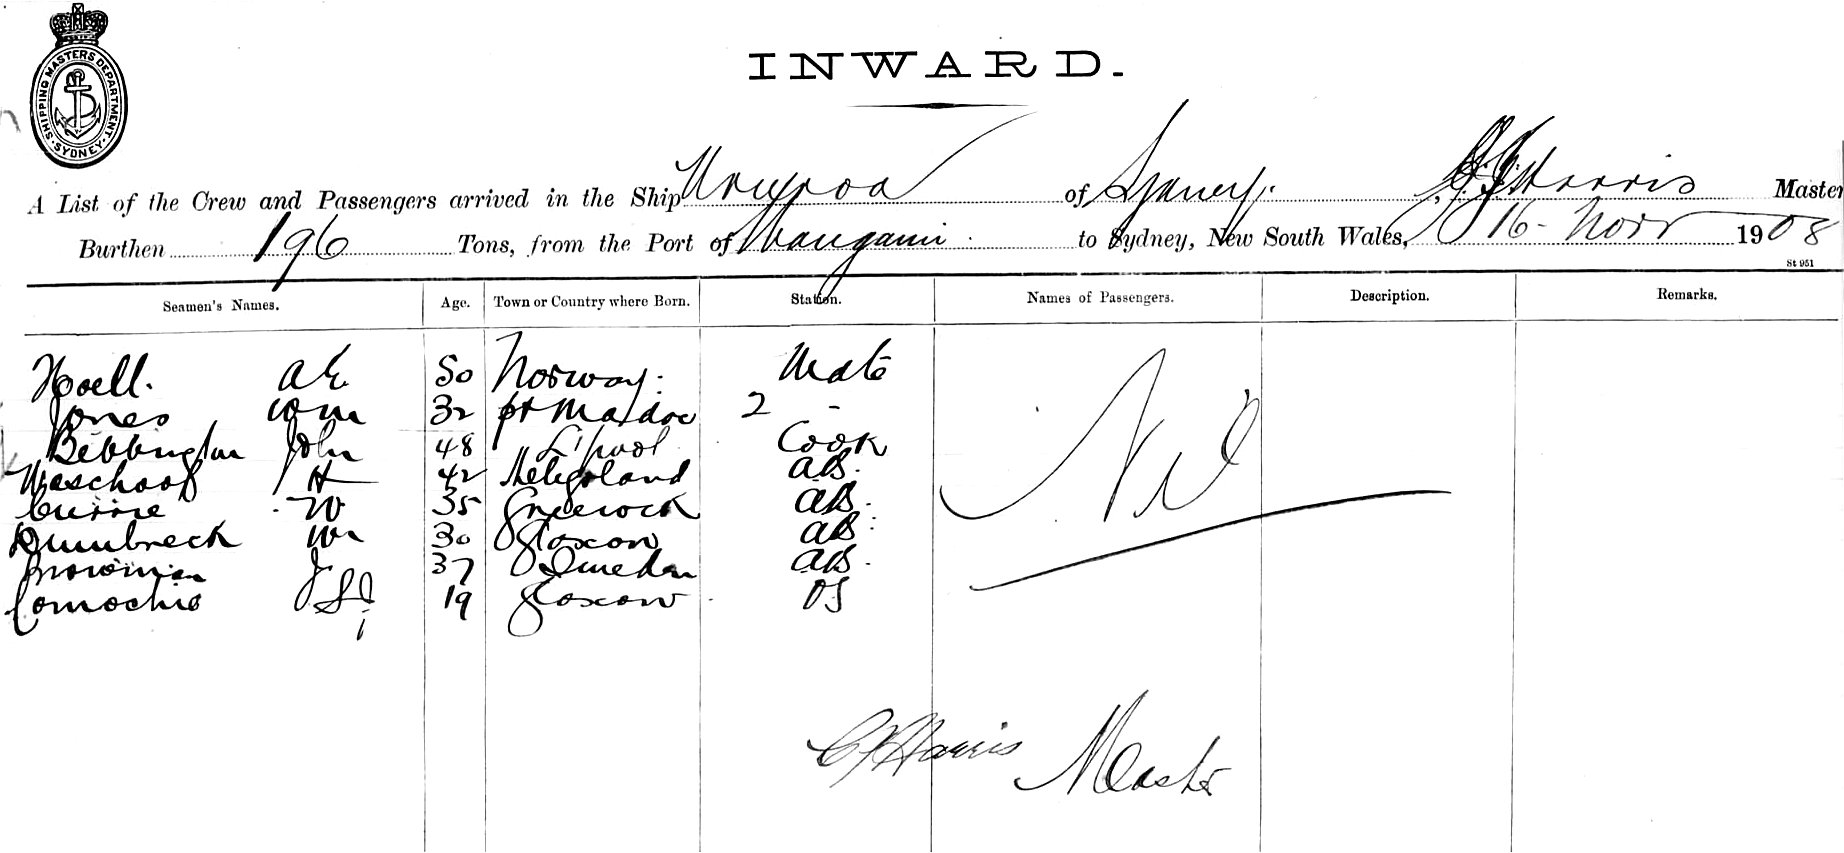 SHIPPING MASTERS DEPARTMENT. SYDNEY.
INWARD.
A List of the Crew and Passengers arrived in the Ship of Sydney. Harris Master
Burthen 196 Tons, from the Port of to Sydney, New South Wales, 16 - Novr 1908
St 951
Seamen's Names. Age. Town or Country where Born. Station. Names of Passengers. Description. Remarks.
Hoell. A E. 50 Norway. Mate Nil
Jones Wm 32 pt Madoc 2 -
Bebbington John 48 L'pool Cook
H 42 Heligoland AB.
Currie W 35 Greenock AB.
Dumbreck Wm 30 Glasgow AB.
J 37 AB.
19 Glasgow OS
Harris Master